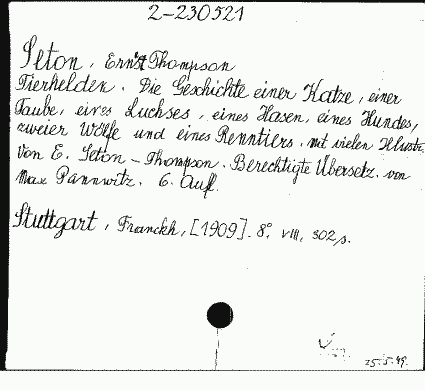 2-230521
Seton, Ernst Thompson
Tierhelden. Die Geschichte einer Katze, einer
Taube, eines Luchses, eines Hasen, eines Hundes,
zweier Wölfe und eines Renntiers, mit vielen Illustr.
von E. Seton-Thompson. Berechtigte Übersetz. von
Max Pannwitz. 6. Aufl.
Stuttgart, Franckh, [1909]. 8°. VIII, 302 s.
25.5.49.